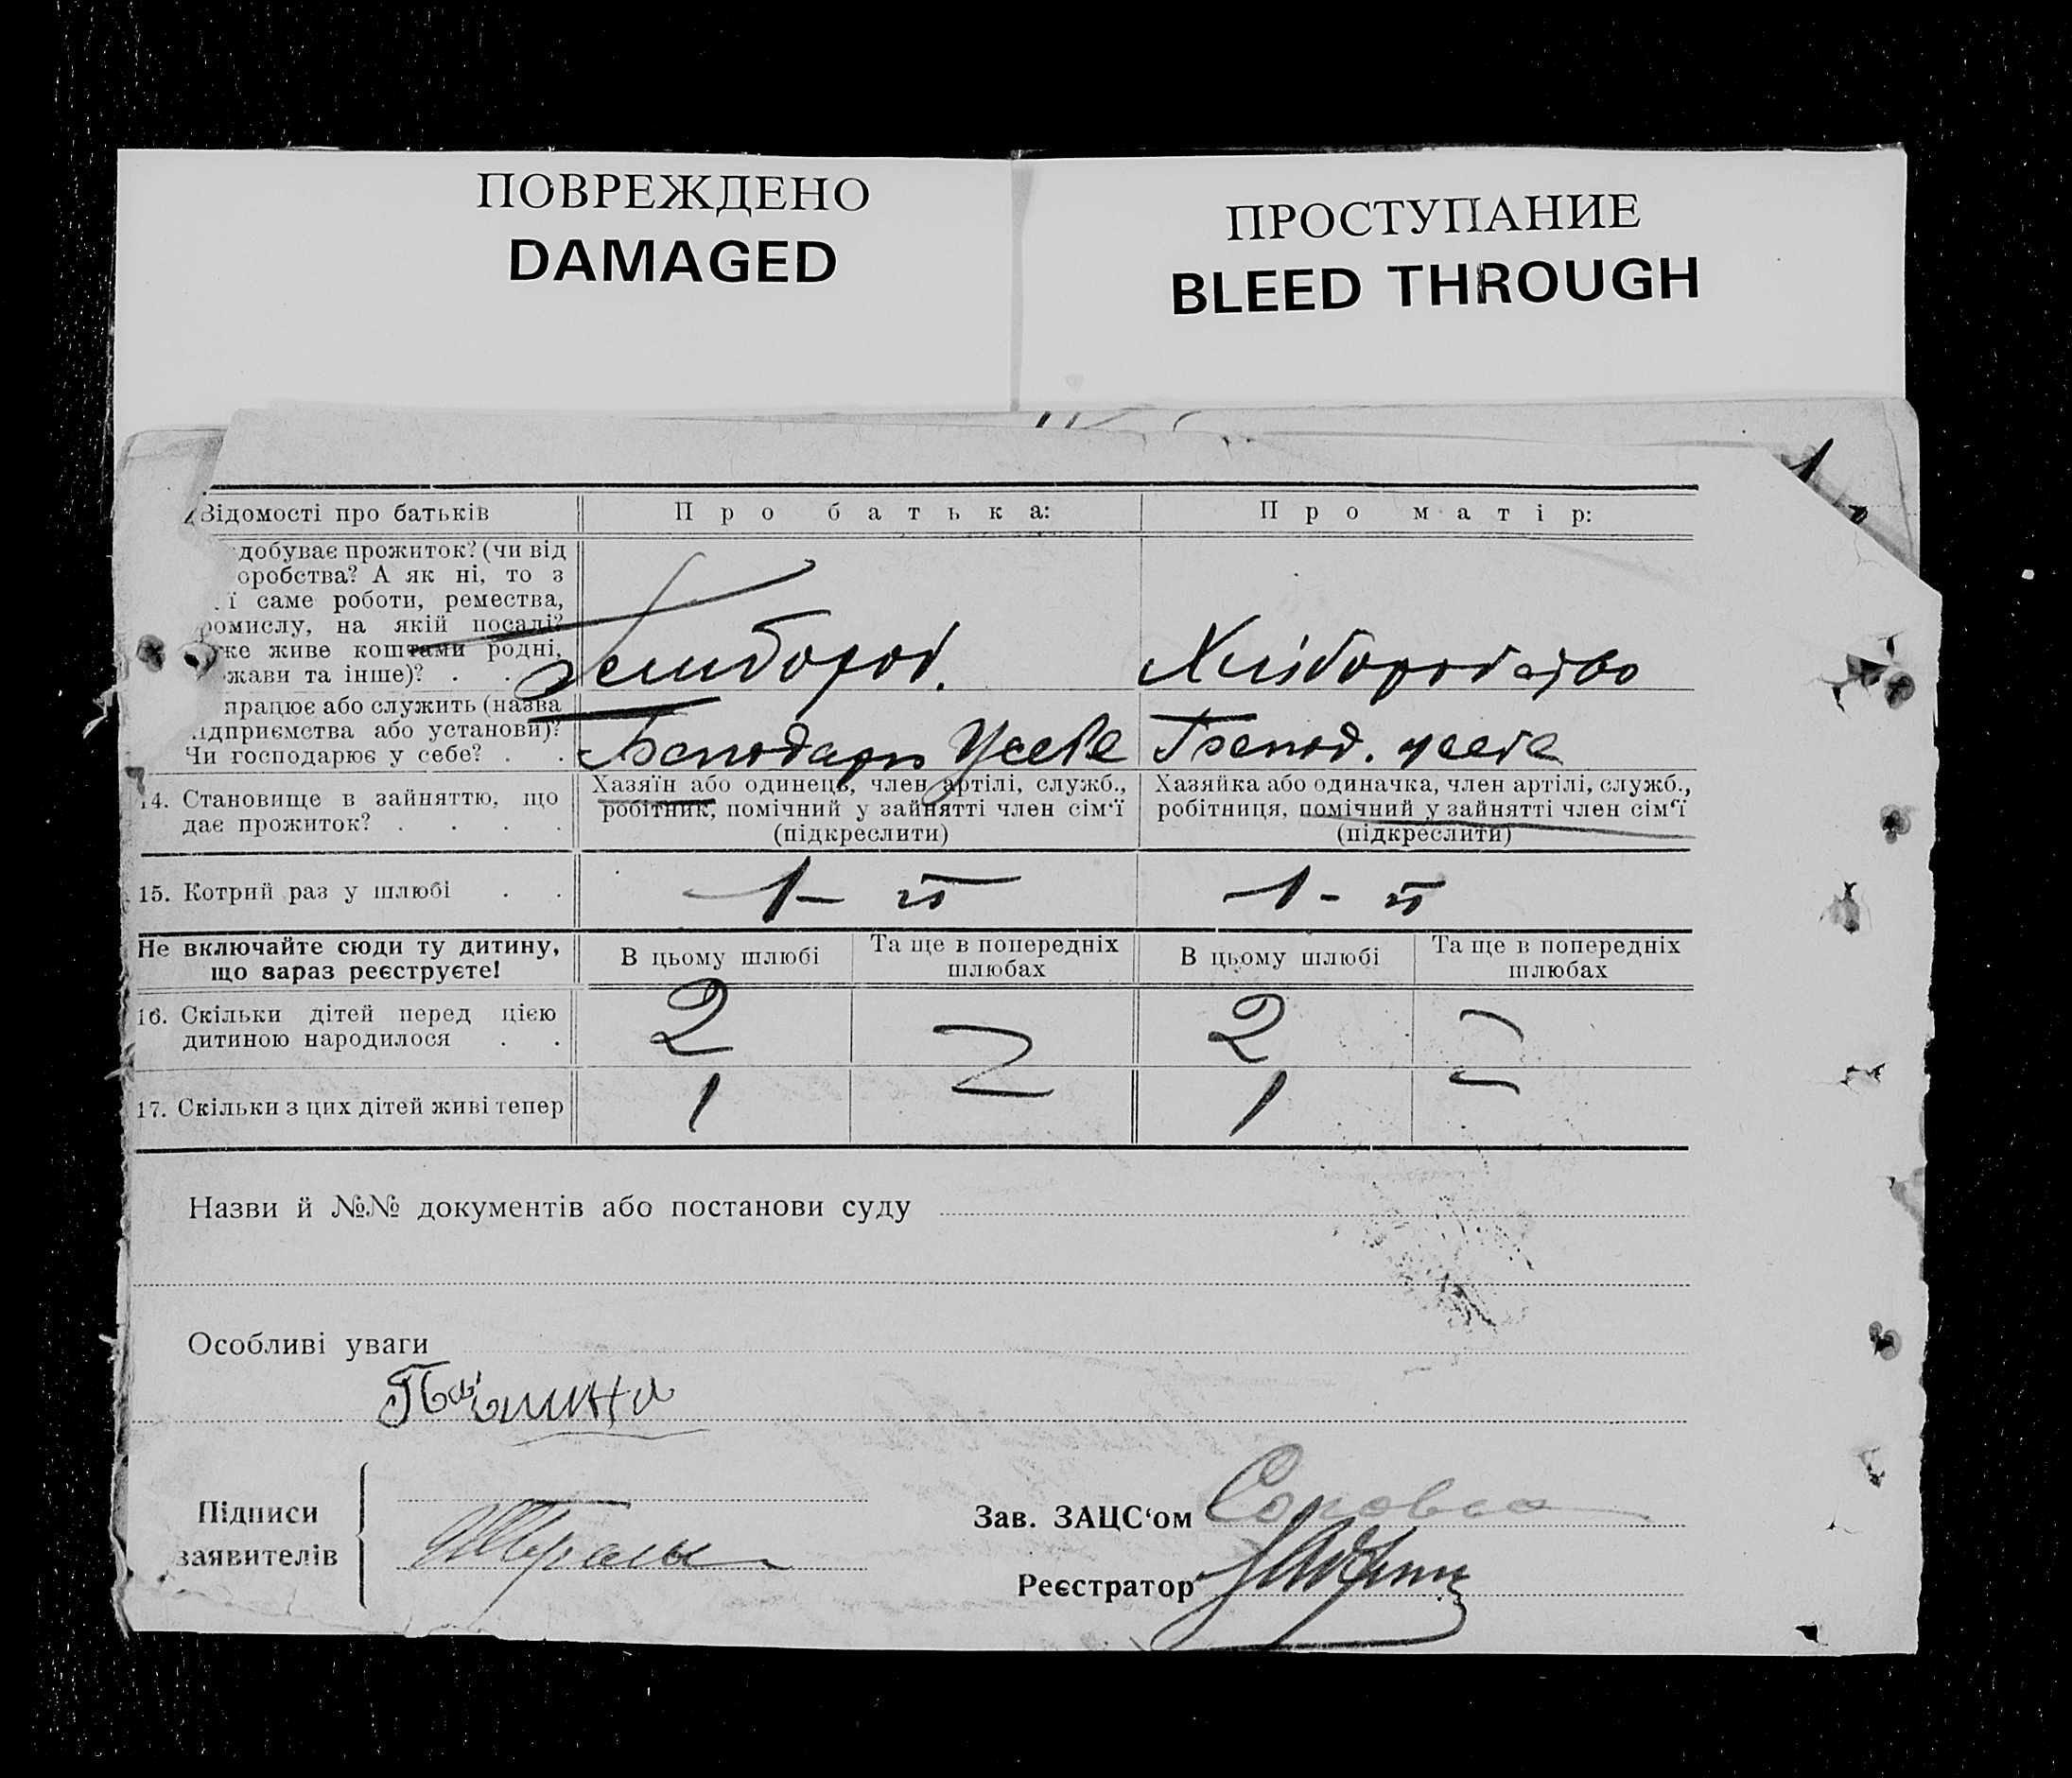 ПОВРЕЖДЕНО
DAMAGED
ПРОСТУПАНИЕ
BLEED THROUGH
Відомості про батьків
Про батька:
Про матір:
добуває прожиток? (чи від
оробства? А як ні, то з
ї саме роботи, ремества,
ромислу, на якій посаді?
же живе коштами родні,
жави та інше)? . .
Хліборобство
працює або служить (назва
ідприємства або установи)?
Чи господарює у себе? . .
Господарь у себе
Господ. у себе
14. Становище в зайняттю, що
дає прожиток? . . . .
Хазяїн або одинець, член артілі, служб.,
робітник, помічний у зайнятті член сім'ї
(підкреслити)
Хазяйка або одиначка, член артілі, служб.,
робітниця, помічний у зайнятті член сім'ї
(підкреслити)
15. Котрий раз у шлюбі . .
1-й
1-й
Не включайте сюди ту дитину,
що зараз реєструєте!
В цьому шлюбі
Та ще в попередніх
шлюбах
В цьому шлюбі
Та ще в попередніх
шлюбах
16. Скільки дітей перед цією
дитиною народилося . .
2
2
17. Скільки з цих дітей живі тепер
1
1
Назви й №№ документів або постанови суду
Особливі уваги
Підписи
заявителів
Зав. ЗАЦС'ом
Реєстратор